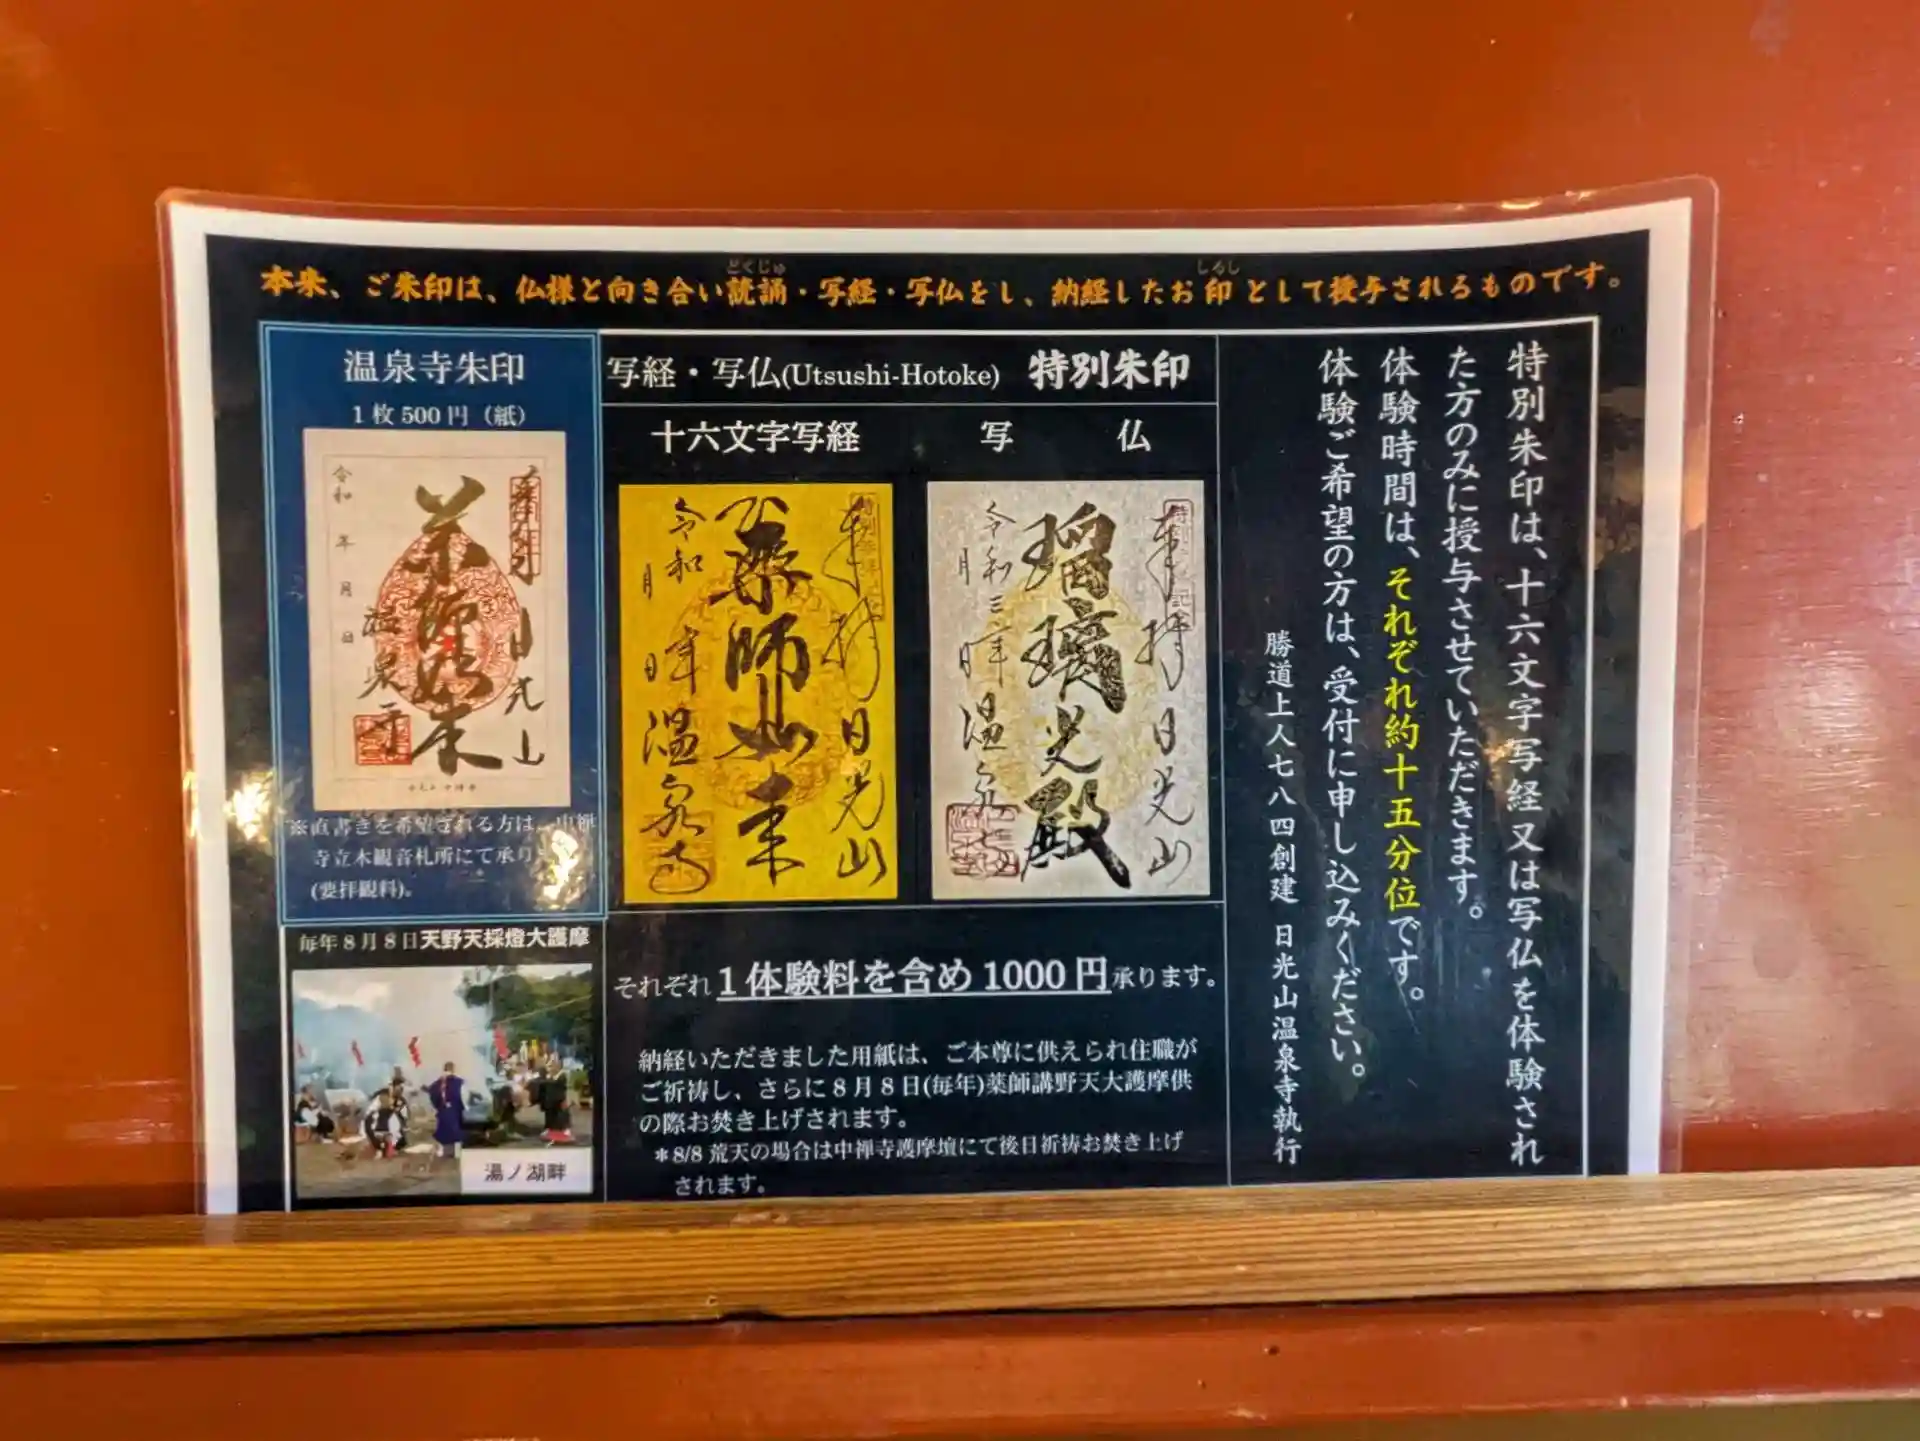 本来、ご朱印は、仏様と向き合い読誦・写経・写仏をし、納経したお印として授与されるものです。
どくじゅ
しるし
温泉寺朱印
1枚500円（紙）
令和 年 月 日
奉拝 日光山
薬師如来
温泉寺
※直書きを希望される方は、中禅
寺立木観音札所にて承り
(要拝観料)。
毎年8月8日天野天採燈大護摩
湯ノ湖畔
写経・写仏(Utsushi-Hotoke) 特別朱印
十六文字写経
写 仏
奉拝 日光山
薬師如来
令和 年 月 日 温泉寺
奉拝 日光山
瑠璃光殿
令和三年 月 日 温泉寺
それぞれ1体験料を含め1000円承ります。
納経いただきました用紙は、ご本尊に供えられ住職が
ご祈祷し、さらに8月8日(毎年)薬師講野天大護摩供
の際お焚き上げされます。
＊8/8荒天の場合は中禅寺護摩壇にて後日祈祷お焚き上げ
されます。
特別朱印は、十六文字写経又は写仏を体験され
た方のみに授与させていただきます。
体験時間は、それぞれ約十五分位です。
体験ご希望の方は、受付に申し込みください。
勝道上人七八四創建 日光山温泉寺執行